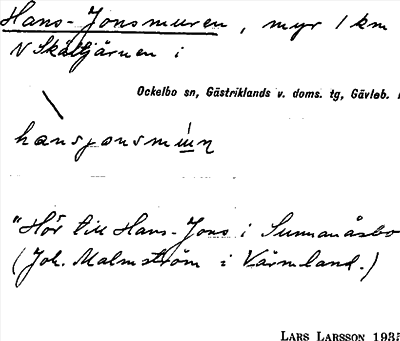 Hans-Jonsmuren, myr 1 km
N Skältjärnen i
Ockelbo sn, Gästriklands v. doms. tg, Gävleb.
hansjonsmún
"Hör till Hans-Jons i Sunnanåsbo
(Joh. Malmström i Värmland.)
LARS LARSSON 1935